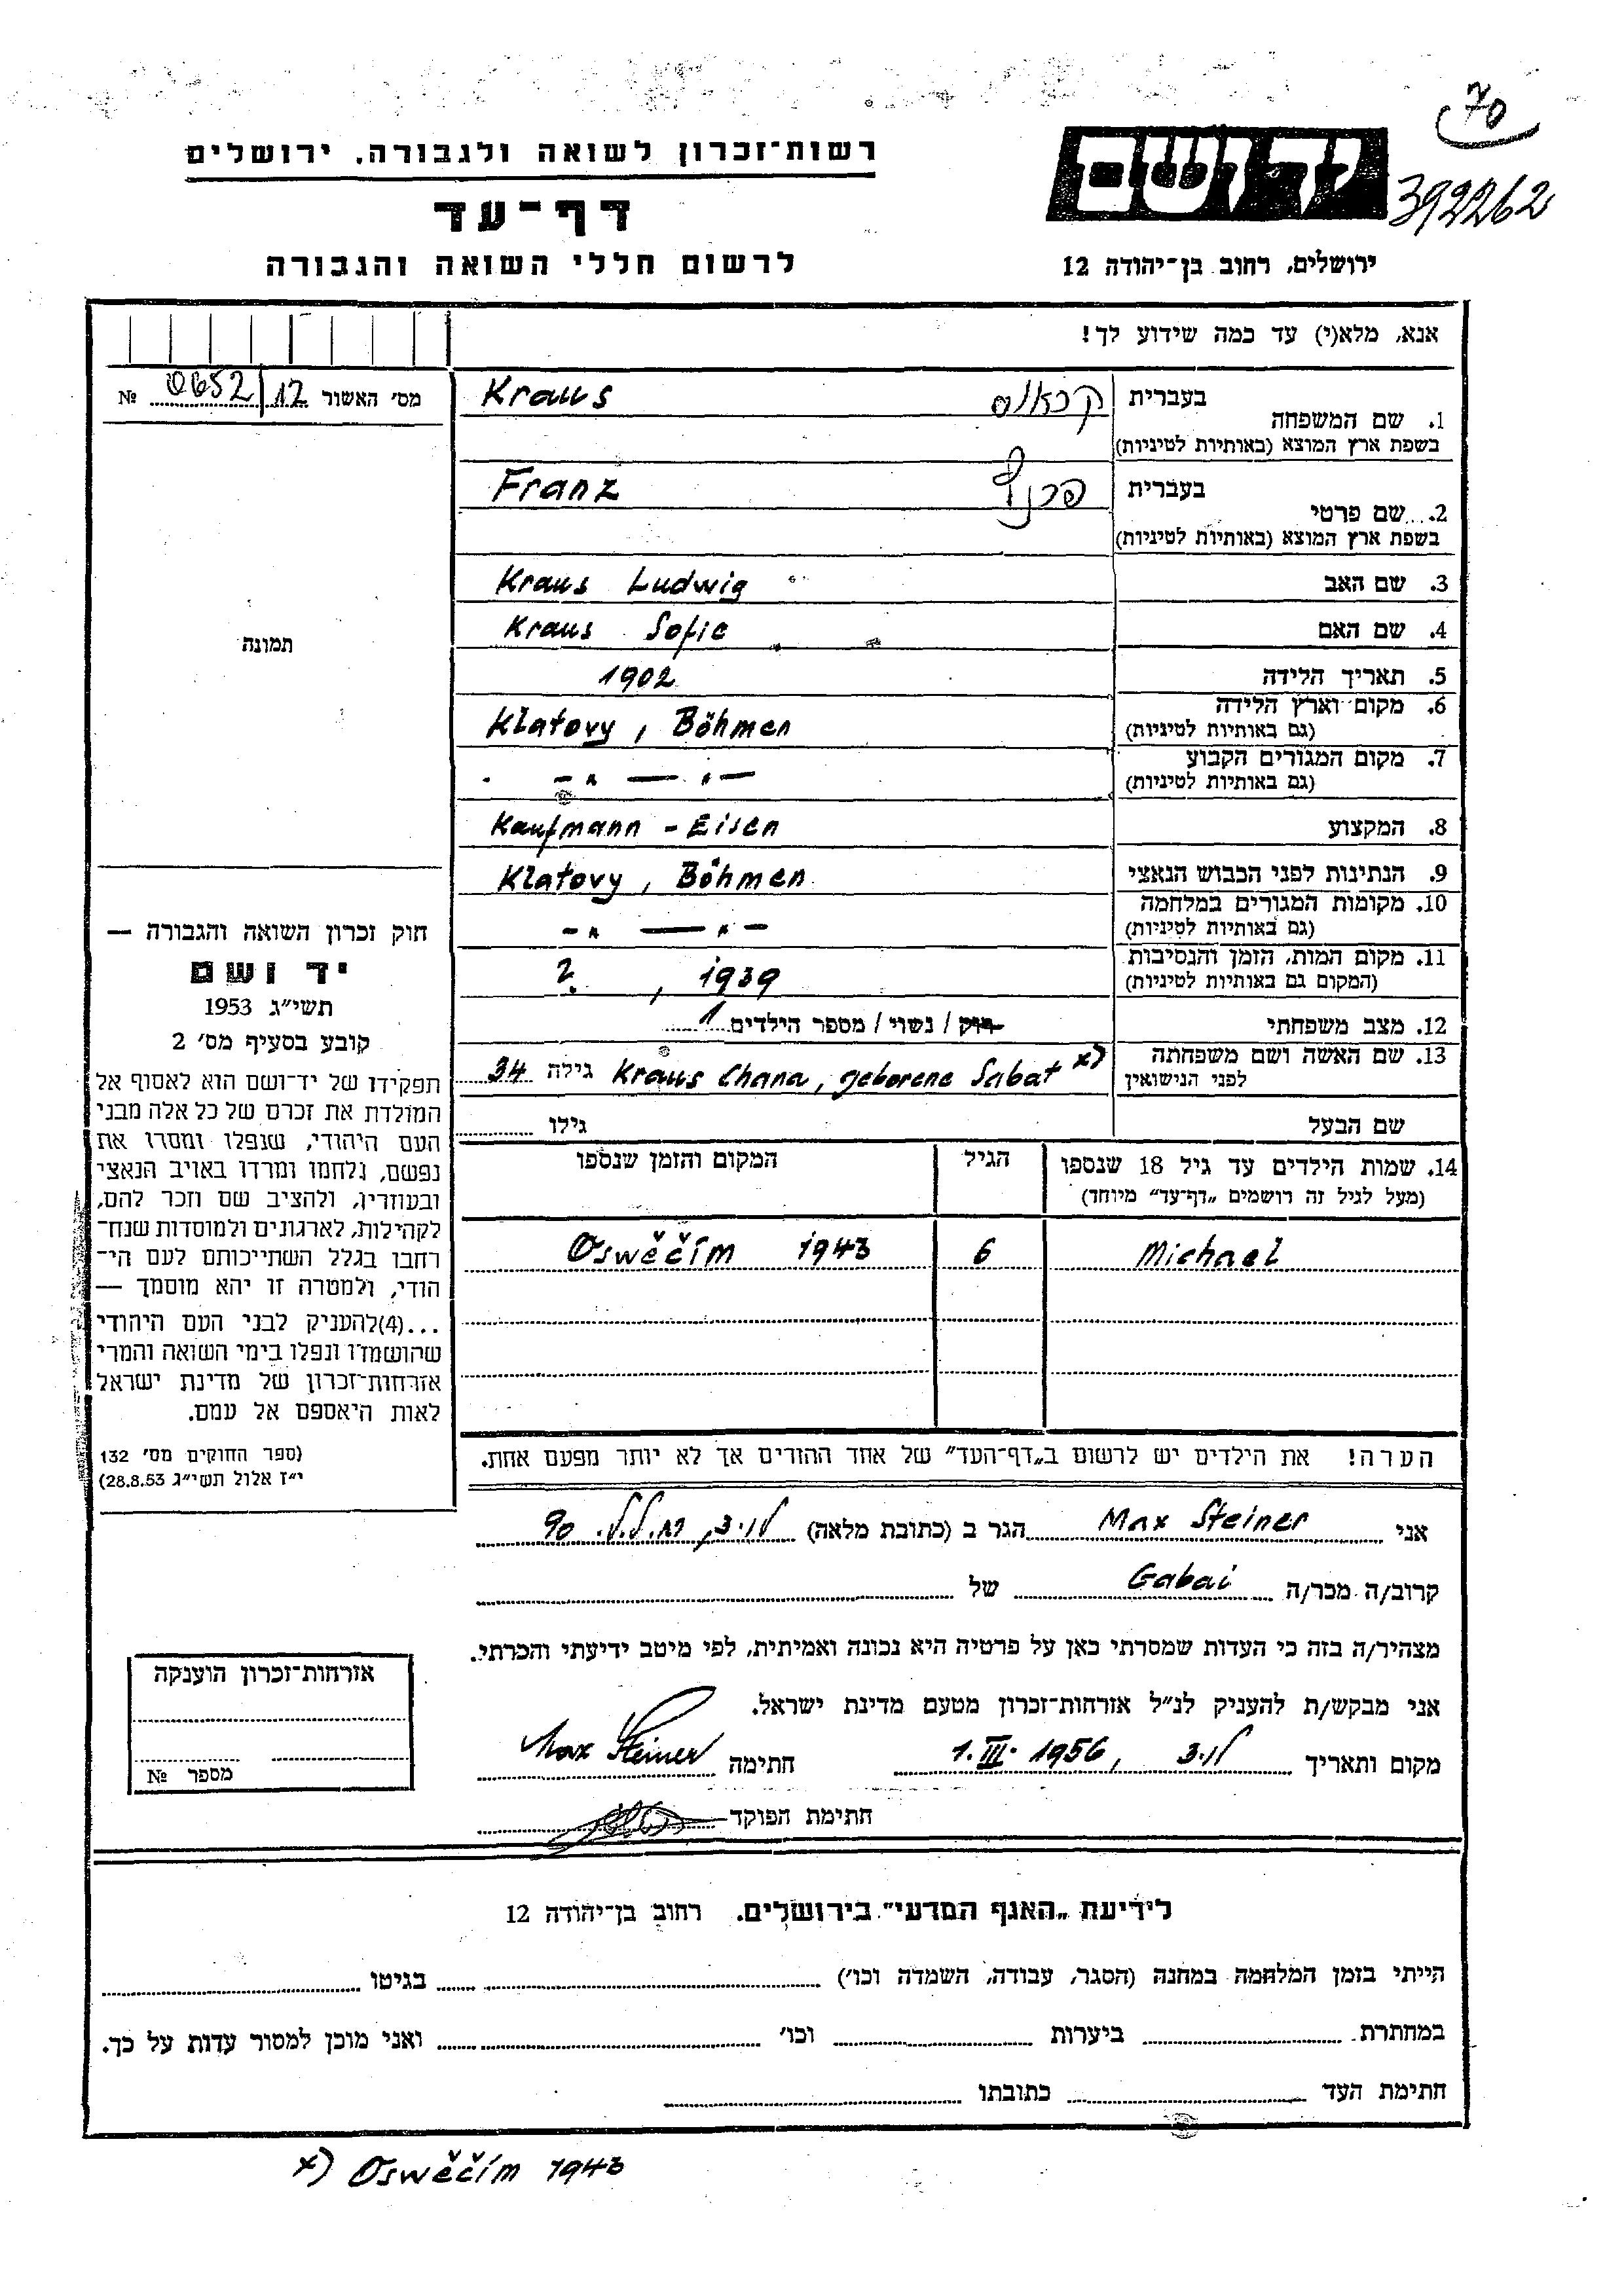 70
392262
יד ושם
רשות־זכרון לשואה ולגבורה, ירושלים
דף־עד
לרשום חללי השואה והגבורה
ירושלים, רחוב בן־יהודה 12
אנא, מלא(י) עד כמה שידוע לך!
מס׳ האשור 12/0652 №
1. שם המשפחה
בעברית קראוס Kraus
בשפת ארץ המוצא (באותיות לטיניות)
2. שם פרטי
בעברית פרנץ Franz
בשפת ארץ המוצא (באותיות לטיניות)
3. שם האב Kraus Ludwig
4. שם האם Kraus Sofie
5. תאריך הלידה 1902
6. מקום וארץ הלידה Klatovy, Böhmen
(גם באותיות לטיניות)
7. מקום המגורים הקבוע -"-—"-
(גם באותיות לטיניות)
8. המקצוע Kaufmann - Eisen
9. הנתינות לפני הכבוש הנאצי Klatovy, Böhmen
10. מקומות המגורים במלחמה -"-—"-
(גם באותיות לטיניות)
11. מקום המות, הזמן והנסיבות ?, 1939
(המקום גם באותיות לטיניות)
12. מצב משפחתי רווק / נשוי / מספר הילדים 1
13. שם האשה ושם משפחתה Kraus Chana, geborene Sabat x) גילה 34
לפני הנישואין
שם הבעל גילו
14. שמות הילדים עד גיל 18 שנספו הגיל המקום והזמן שנספו
(מעל לגיל זה רושמים „דף־עד” מיוחד)
Michael 6 Oswěčím 1943
הערה! את הילדים יש לרשום ב„דף־העד” של אחד ההורים אך לא יותר מפעם אחת.
תמונה
חוק זכרון השואה והגבורה —
יד ושם
תשי״ג 1953
קובע בסעיף מס׳ 2
תפקידו של יד־ושם הוא לאסוף אל
המולדת את זכרם של כל אלה מבני
העם היהודי, שנפלו ומסרו את
נפשם, נלחמו ומרדו באויב הנאצי
ובעוזריו, ולהציב שם וזכר להם,
לקהילות, לארגונים ולמוסדות שנח־
רבו בגלל השתייכותם לעם הי־
הודי, ולמטרה זו יהא מוסמך —
...(4)להעניק לבני העם היהודי
שהושמדו ונפלו בימי השואה והמרי
אזרחות־זכרון של מדינת ישראל
לאות היאספם אל עמם.
(ספר החוקים מס׳ 132
י״ז אלול תשי״ג 28.8.53)
אני Max Steiner הגר ב (כתובת מלאה) 90
קרוב/ה מכר/ה Gabai של
מצהיר/ה בזה כי העדות שמסרתי כאן על פרטיה היא נכונה ואמיתית, לפי מיטב ידיעתי והכרתי.
אני מבקש/ת להעניק לנ״ל אזרחות־זכרון מטעם מדינת ישראל.
מקום ותאריך 1.III.1956, חתימה Max Steiner
חתימת הפוקד
אזרחות־זכרון הוענקה
מספר №
לידיעת „האגף המדעי” בירושלים, רחוב בן־יהודה 12
הייתי בזמן המלחמה במחנה (הסגר, עבודה, השמדה וכו׳) בגיטו
במחתרת ביערות וכו׳ ואני מוכן למסור עדות על כך.
חתימת העד כתובתו
x) Oswěčím 1943